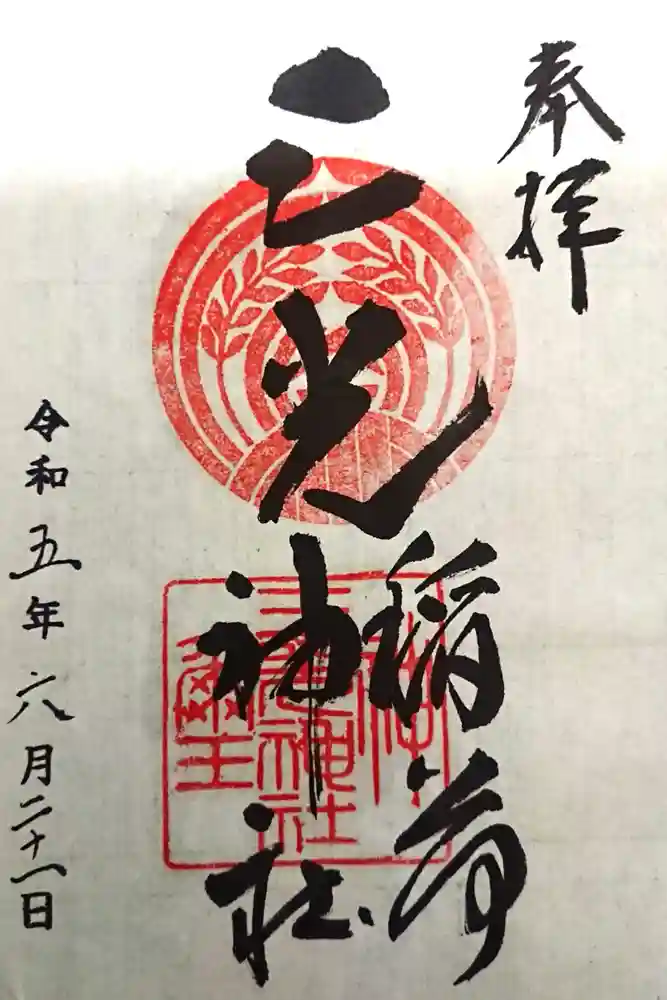 奉拝
三光
稲荷
神社
三光神社
令和五年六月二十一日